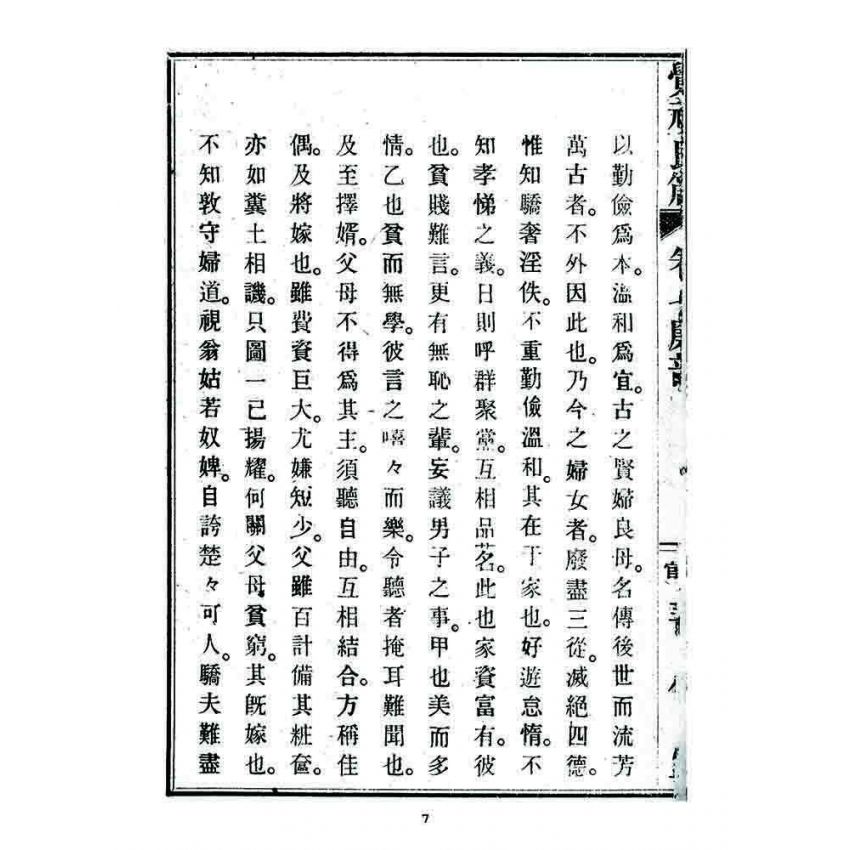 以勤儉爲本。溫和爲宜。古之賢婦良母。名傳後世而流芳
萬古者。不外因此也。乃今之婦女者。廢盡三從。滅絕四德。
惟知驕奢淫佚。不重勤儉溫和。其在于家也。好遊怠惰。不
知孝悌之義。日則呼群聚黨。互相品茗。此也家資富有。彼
也。貧賤難言。更有無恥之輩。妄議男子之事。甲也美而多
情。乙也貧而無學。彼言之嘻々而樂。令聽者掩耳難聞也。
及至擇婿。父母不得爲其主。須聽自由。互相結合。方稱佳
偶。及將嫁也。雖費資巨大。尤嫌短少。父雖百計備其粧奩。
亦如糞土相譏。只圖一己揚耀。何關父母貧窮。其旣嫁也。
不知敦守婦道。視翁姑若奴婢。自誇楚々可人。驕夫難盡
7